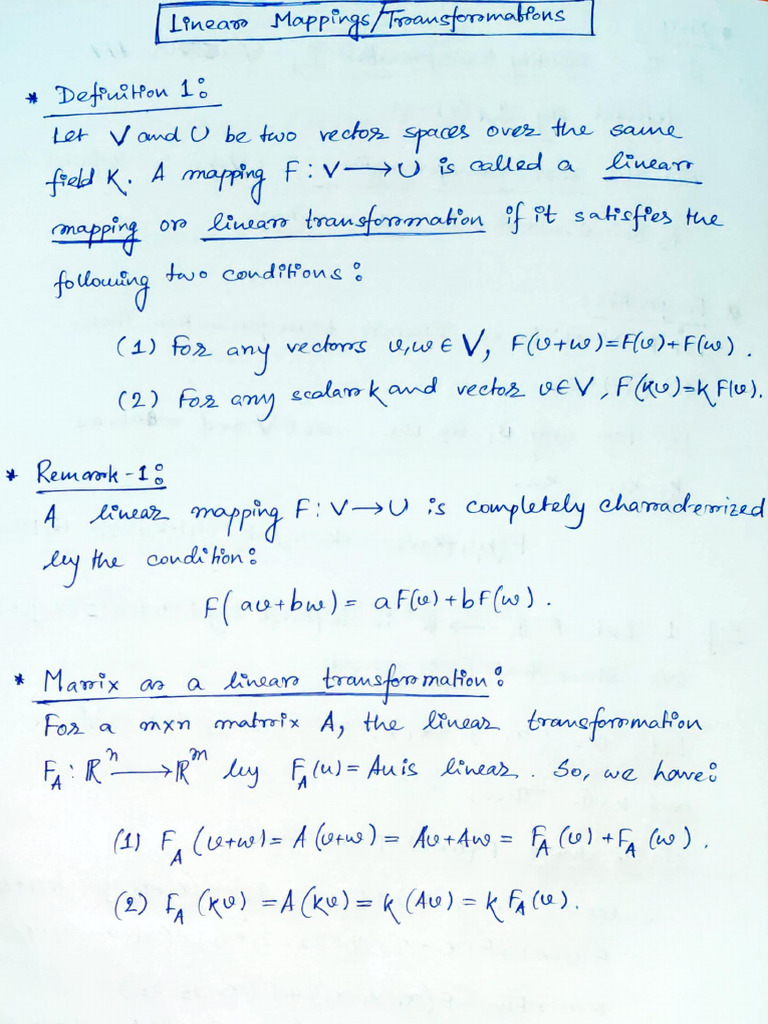 Linear Mappings/Transformations
* Definition 1:
Let V and U be two vector spaces over the same
field K. A mapping F: V → U is called a linear
mapping or linear transformation if it satisfies the
following two conditions:
(1) For any vectors v,w ∈ V, F(v+w)=F(v)+F(w).
(2) For any scalar k and vector v∈V, F(kv)=k F(v).
* Remark-1:
A linear mapping F: V→U is completely characterized
by the condition:
F(av+bw)= aF(v)+bF(w).
* Matrix as a linear transformation:
For a mxn matrix A, the linear transformation
F_A : ℝⁿ → ℝᵐ by F_A(u)= Au is linear. So, we have:
(1) F_A (v+w)= A(v+w)= Av+Aw = F_A(v)+F_A(w).
(2) F_A (kv) =A(kv)= k(Av)= k F_A(v).